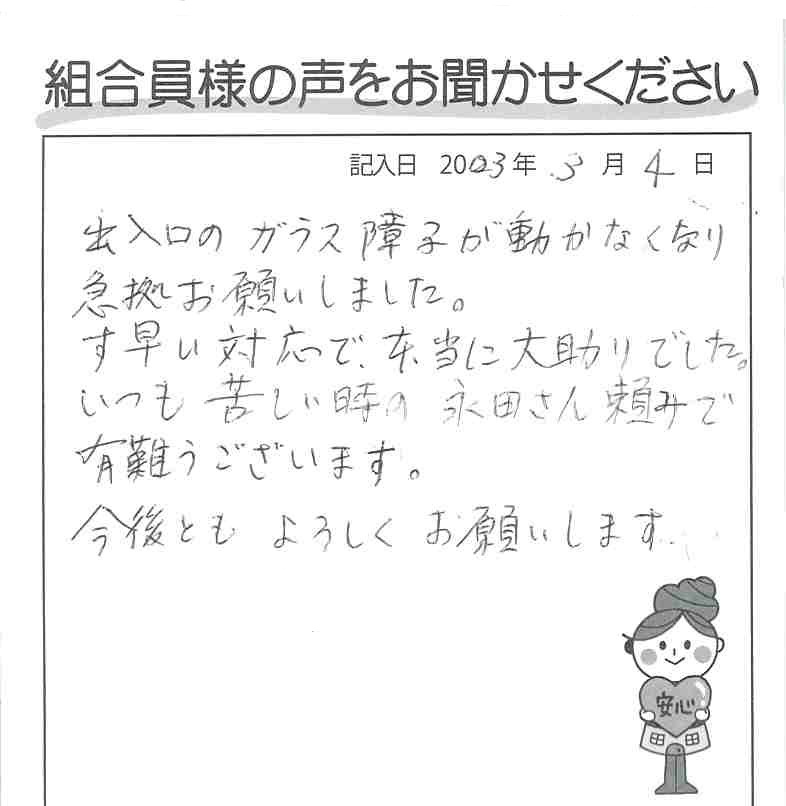 組合員様の声をお聞かせください
記入日 2023年 3月 4日
出入口のガラス障子が動かなくなり
急拠お願いしました。
す早い対応で、本当に大助かりでした。
いつも苦しい時の永田さん頼みで
有難うございます。
今後ともよろしくお願いします。
安心